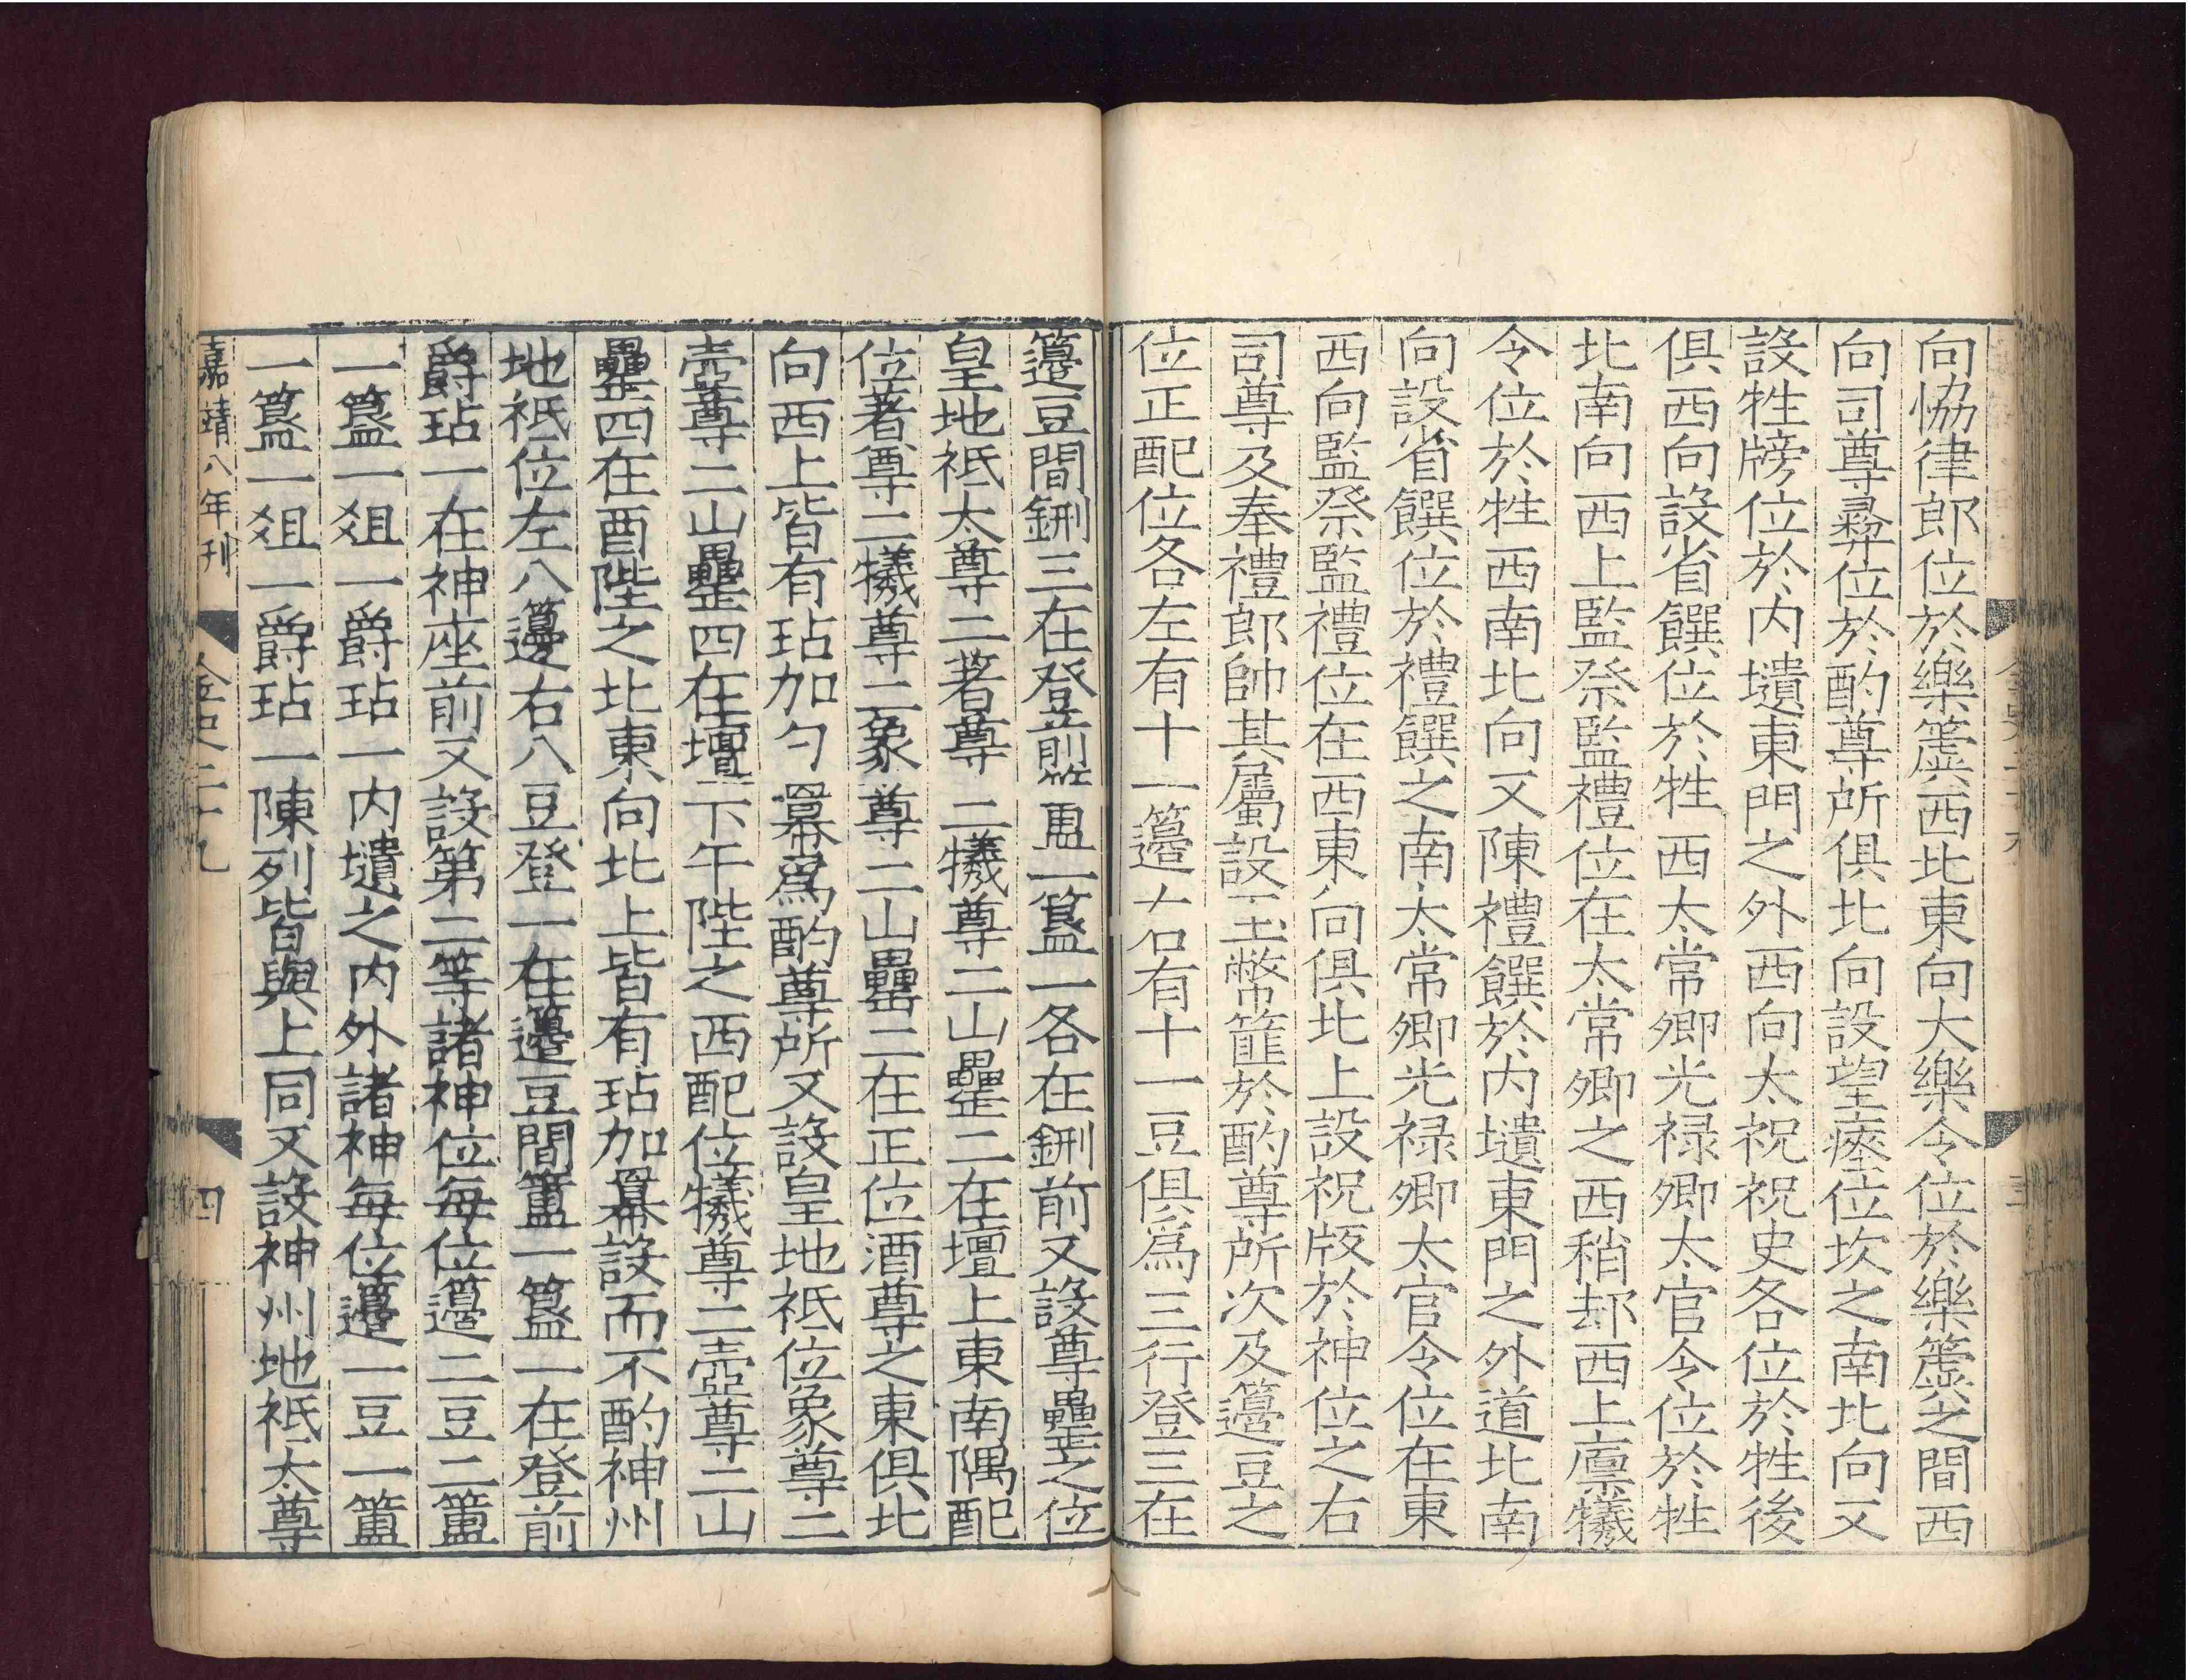 向協律郎位於樂簴西北東向大樂令位於樂簴之間西
向司尊彛位於酌尊所俱北向設望瘞位坎之南北向又
設牲牓位於内壝東門之外西向太祝祝史各位於牲後
俱西向設省饌位於牲西太常卿光禄卿太官令位於牲
北南向西上監祭監禮位在太常卿之西稍却西上廩犧
令位於牲西南北向又陳禮饌於内壝東門之外道北南
向設省饌位於禮饌之南太常卿光禄卿太官令位在東
西向監祭監禮位在西東向俱北上設祝版於神位之右
司尊及奉禮郎帥其屬設玉幣篚於酌尊所次及籩豆之
位正配位各左有十一籩右有十一豆俱爲三行登三在
籩豆間鉶三在登前簠一簋一各在鉶前又設尊罍之位
皇地祗太尊二著尊二犧尊二山罍二在壇上東南隅配
位著尊二犧尊二象尊二山罍二在正位酒尊之東俱北
向西上皆有坫加勺冪爲酌尊所又設皇地祗位象尊二
壺尊二山罍四在壇下午陛之西配位犧尊二壺尊二山
罍四在酉陛之北東向北上皆有坫加冪設而不酌神州
地祗位左八籩右八豆登一在籩豆間簠一簋一在登前
爵坫一在神座前又設第二等諸神位每位籩二豆二簠
一簋一爼一爵坫一内壝之内外諸神每位籩一豆一簠
一簋一爼一爵坫一陳列皆與上同又設神州地祗太尊
嘉靖八年刊
四